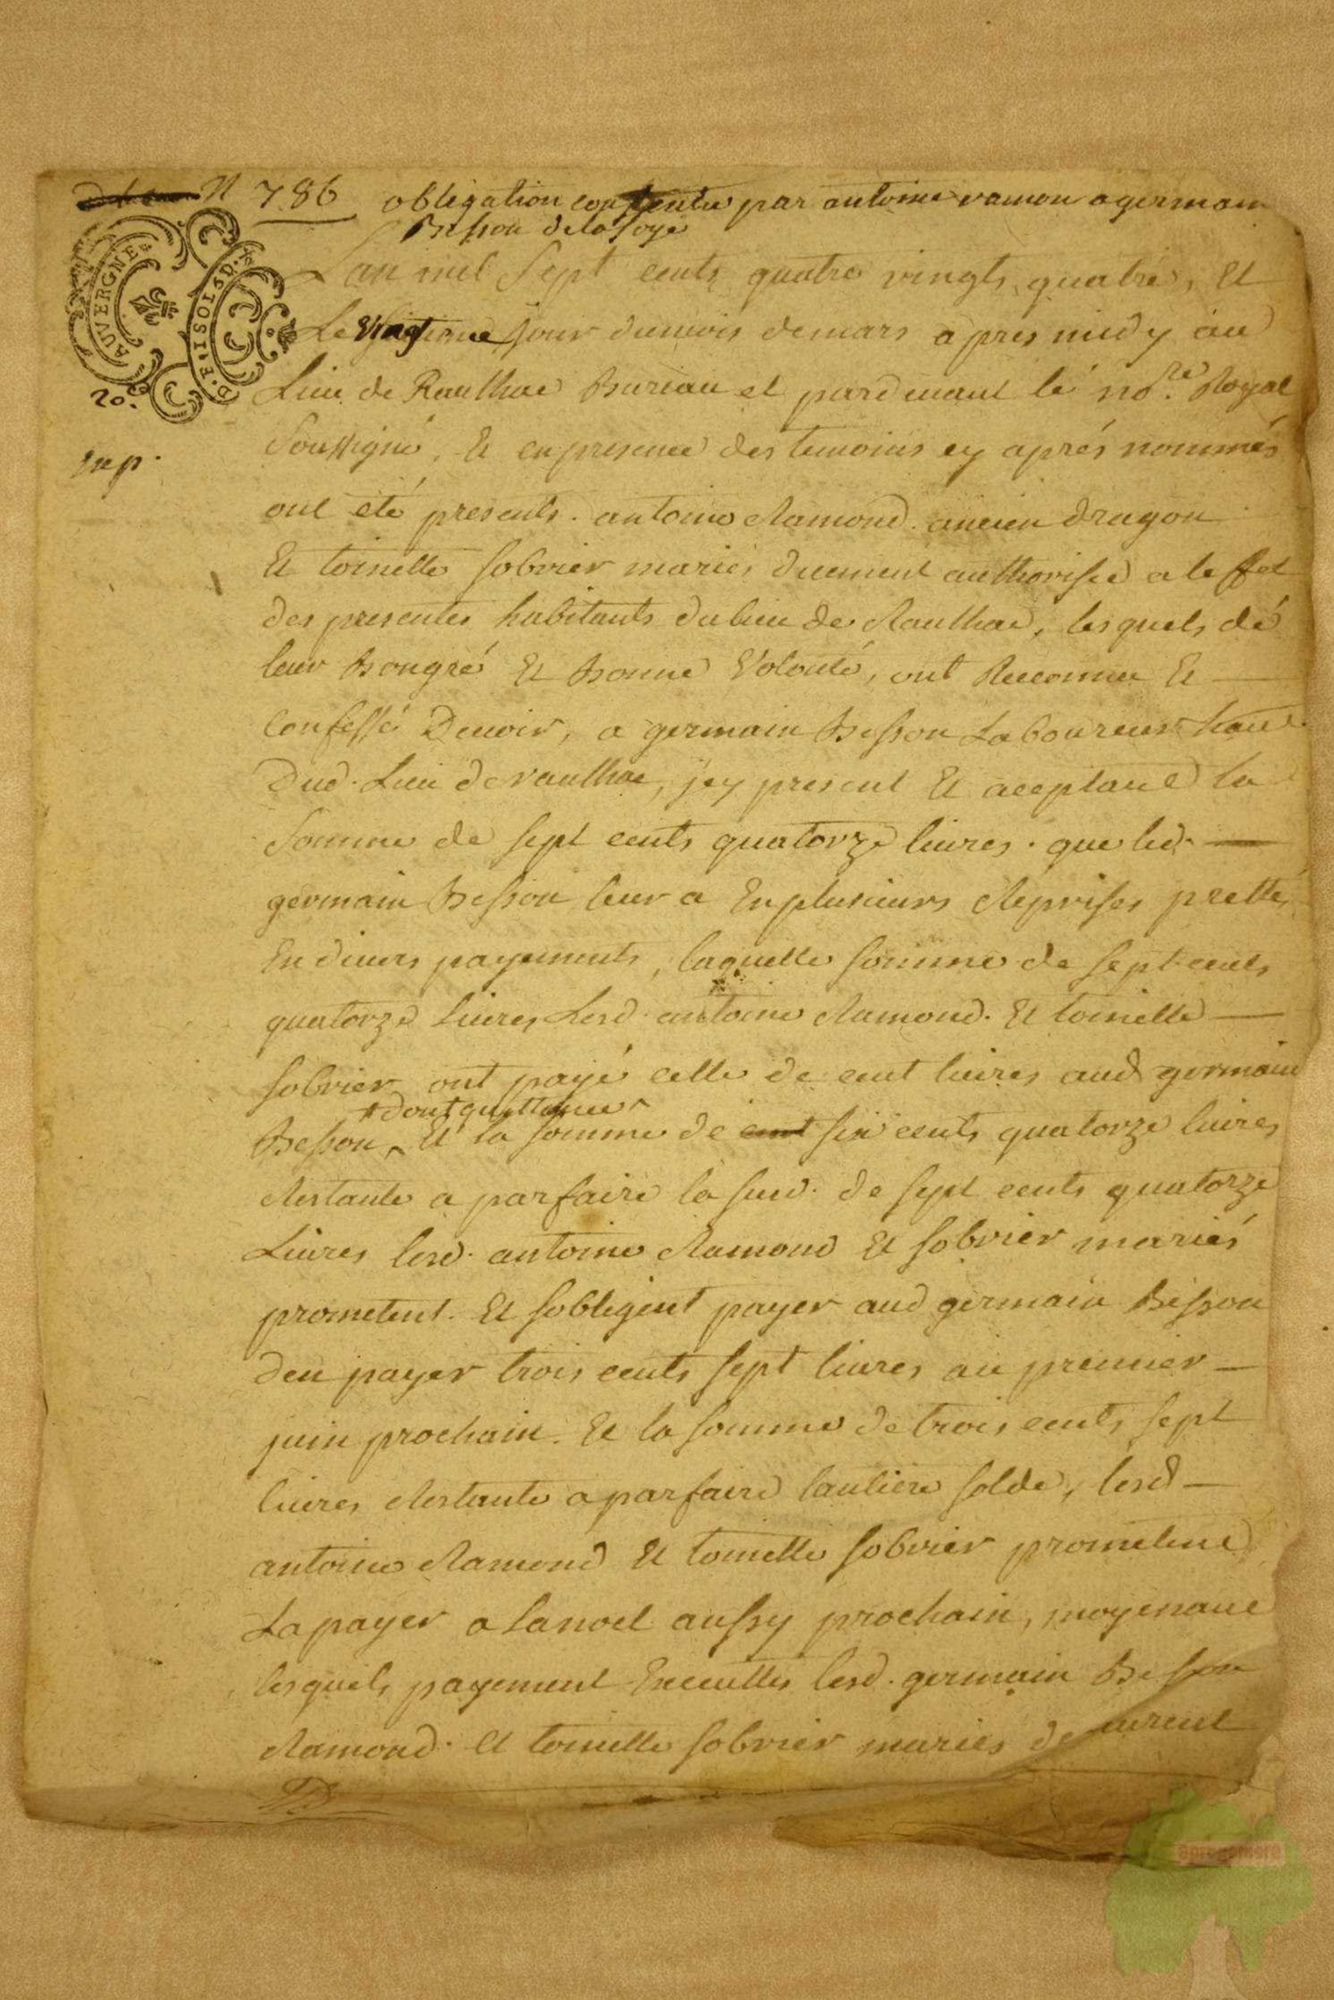 N 786 obligation consentie par antoine ramon a germain
Besson de la foge
Lan mil Sept cents quatre vingts quatre, Et
Le jour dumois demars apres midy au
Lieu de Raulhac Bureau et pardevant le no.re Royal
Soussigné, Et enpresence des temoins cy aprés nommés
ont eté presents. antoine Ramond. ancien dragon
Et toinette sobrier mariés duement authorisée a leffet
des presentes habitants du lieu de Raulhac, lesquels dé
leur Bongré Et Bonne Volonté, ont Reconnu Et
Confessé Devoir, a germain Besson Laboureur hant
Dud. Lieu deraulhac, jcy present Et aceptant la
Somme de sept cents quatorze livres. que led.
germain Besson leur a En plusieurs Reprises pretté,
En divers payements, laquelle somme de sept cents
quatorze livres Lesd. antoine Ramond. Et toinette
sobrier ont payé celle de cent livres aud germain
dont quittance
Besson, Et la somme de cent six cents quatorze livres
Restante a parfaire la susd. de sept cents quatorze
Livres lesd. antoine Ramond Et sobrier mariés
prometent. Et sobligent payer aud germain Besson
den payer trois cents sept livres au premier
juin prochain. Et la somme de trois cents sept
livres Restante a parfaire lantiere solde, lesd
antoine Ramond Et toinette sobrier prometent
La payer a lanoel aussy prochain, moyenant
lesquels payement lesd. germain Besson
Ramond. Et toinette sobrier mariés
AUVERGNE
20.